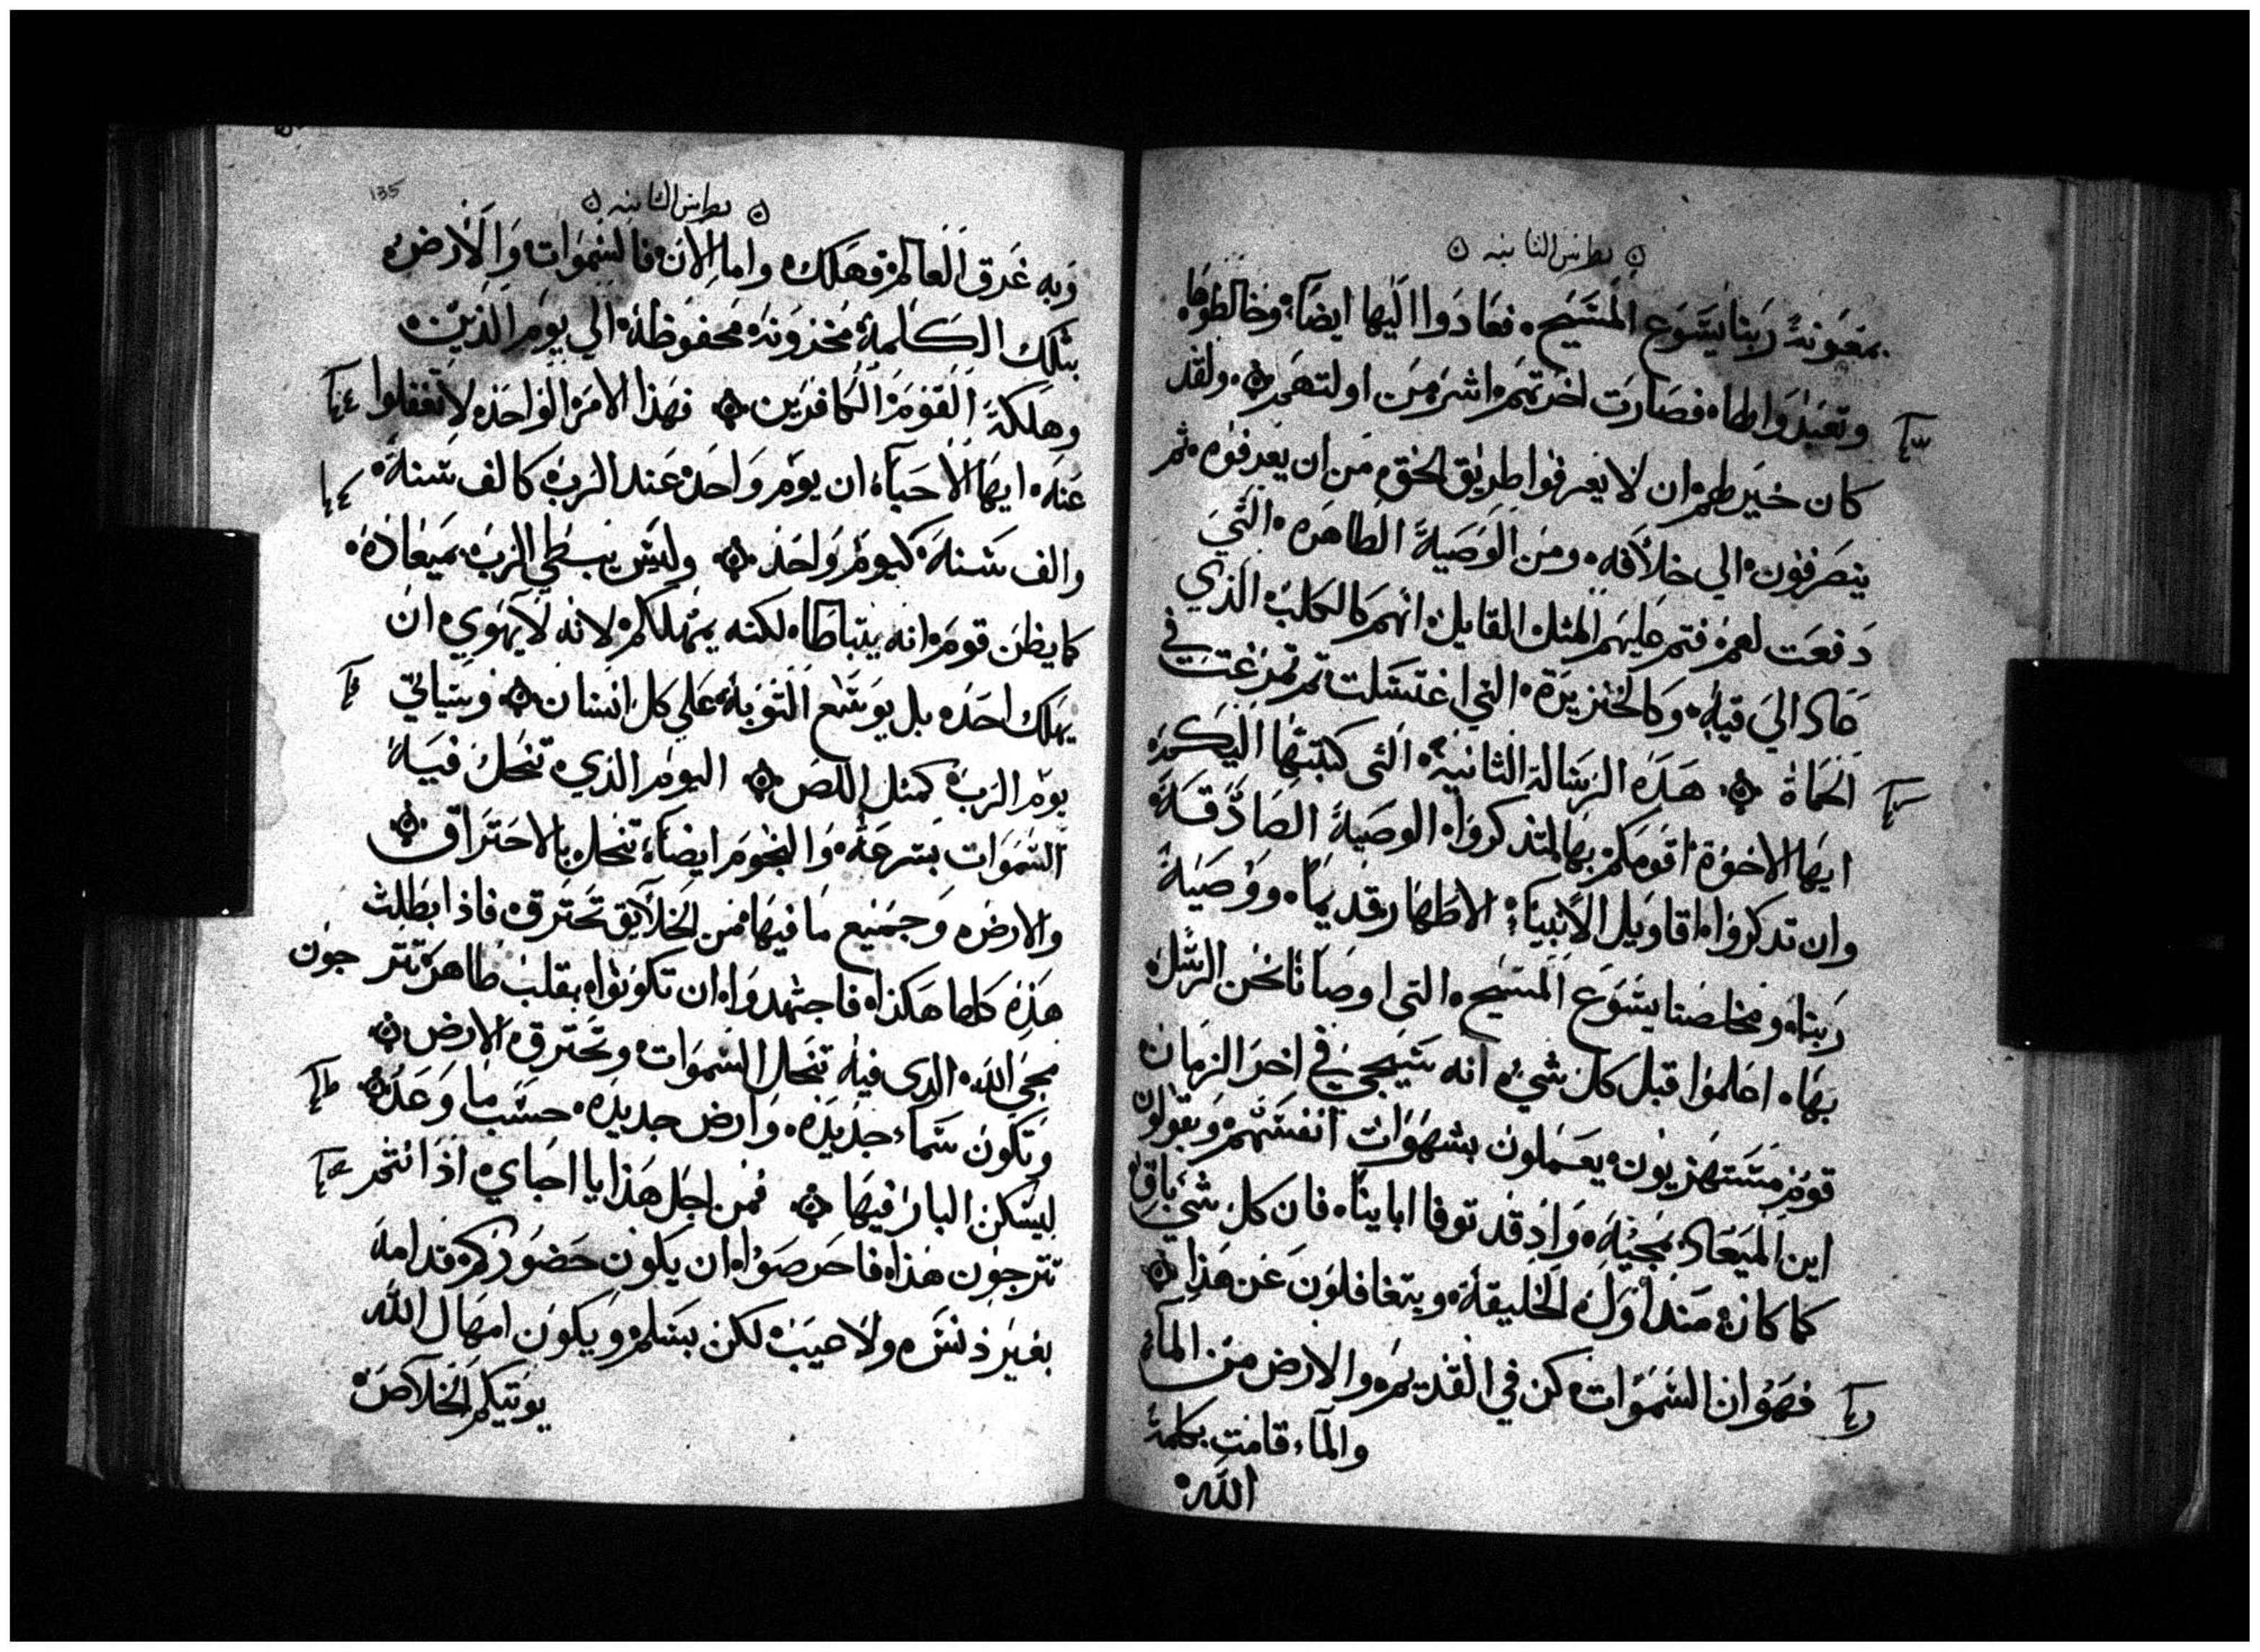 بطرس الثانيه
بمعونة ربنا يسوع المسيح فعادوا اليها ايضاً وخالطوها
وتعبدوا لها فصارت اخرتهم اشر من اولتهم ولقد
كان خير لهم ان لا يعرفوا طريق الحق من ان يعرفوه ثم
ينصرفون الي خلافه ومن الوصية الطاهره التي
دفعت لهم فتم عليهم المثل القايل انهم كالكلب الذي
عاد الي قيه وكالخنزيرة التي اغتسلت ثم تمرغت في
الحماة هذه الرسالة الثانية التي كتبتها اليكم
ايها الاخوة اقومكم بها لتذكروا الوصية الصادقة
وان تذكروا اقاويل الانبياء الاطهار قديماً ووصية
ربنا ومخلصنا يسوع المسيح التي اوصانا نحن الرسل
بها اعلموا قبل كل شيء انه سيجي في اخر الزمان
قوم مستهزيون يعملون بشهوات انفسهم ويقولون
اين الميعاد بمجيه واذ قد توفا اباينا فان كل شي باق
كما كان منذ اول الخليقة ويتغافلون عن هذا
فهو ان السموات كن في القديم والارض من الماء
والماء قامت بكلمة
الله
135
بطرس الثانيه
وبه غرق العالم فهلك واما الان فالسموات والارض
بتلك الكلمة مخزونة محفوظة الي يوم الدين
وهلكة القوم الكافرين فهذا الامر الواحد لا تغفلوا
عنه ايها الاحباء ان يوم واحد عند الرب كالف سنة
والف سنة كيوم واحد وليس يبطي الرب بميعاده
كما يظن قوم انه يتباطا لكنه يمهلكم لانه لا يهوي ان
يهلك احد بل يوسع التوبة علي كل انسان وسياتي
يوم الرب كمثل اللص اليوم الذي تنحل فيه
السموات بسرعة والنجوم ايضاً تنحل بالاحتراق
والارض وجميع ما فيها من الخلايق تحترق فاذا بطلت
هذه كلها هكذا فاجتهدوا ان تكونوا بقلب طاهر تترجون
مجي الله الذي فيه تنحل السموات وتحترق الارض
وتكون سماء جديده وارض جديده حسب ما وعد
ليسكن البار فيها فمن اجل هذا يا احباي اذ انتم
تترجون هذا فاحرصوا ان يكون حضوركم قدامه
بغير دنس ولا عيب لكن بسلم ويكون امهال الله
يوتيكم الخلاص